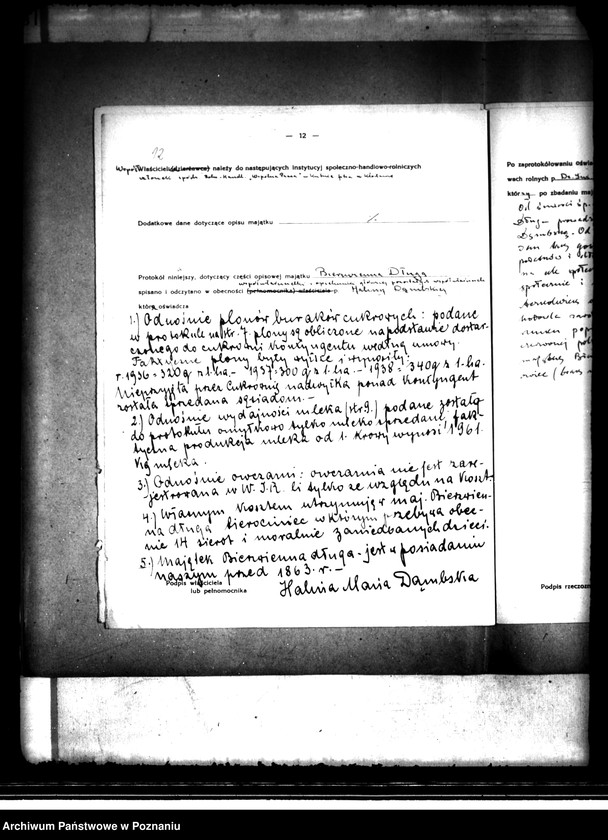 — 12 —
12
Współ Właściciel (dzierżawca) należy do następujących instytucyj społeczno-handlowo-rolniczych
członek społ. Roln. Handl. „Wspólna Praca” w Kutnie
Dodatkowe dane dotyczące opisu majątku
Protokół niniejszy, dotyczący części opisowej majątku Bierzwienna Długa
współwłaścicielki
spisano i odczytano w obecności (pełnomocnika) właściciela p. Haliny Dąmbskiej
która oświadcza
1.) Odnośnie plonów buraków cukrowych: podane
w protokule na str. 7 plony są obliczone na podstawie dostar-
czonego do cukrowni kontyngentu według umowy.
Faktyczne plony były wyższe i wynosiły:
r. 1936 = 320 q z 1. ha. – 1937 = 300 q z 1. ha. – 1938 = 340 q z 1. ha.
Nieprzyjęta przez Cukrownię nadwyżka ponad kontyngent
została sprzedana sąsiadom. –
2.) Odnośnie wydajności mleka (str 9.) podane zostało
do protokułu omyłkowo tylko mleko sprzedane, fak-
tyczna produkcja mleka od 1. krowy wynosi 1961.
kg mleka.
3.) Odnośnie owczarni: owczarnia nie jest zare-
jestrowana w W.I.R. li tylko ze względu na koszt.
4.) Własnym kosztem utrzymuję w maj. Bierzwien-
na długa sierociniec w którym przebywa obec-
nie 14 sierot i moralnie zaniedbanych dzieci.
5.) Majątek Bierzwienna długa – jest w posiadaniu
naszym przed 1863. r. –
Podpis właściciela
lub pełnomocnika
Halina Maria Dąmbska
Po zaprotokółowaniu
wach rolnych p.
którzy po zbadaniu
Podpis rzeczoz
Archiwum Państwowe w Poznaniu